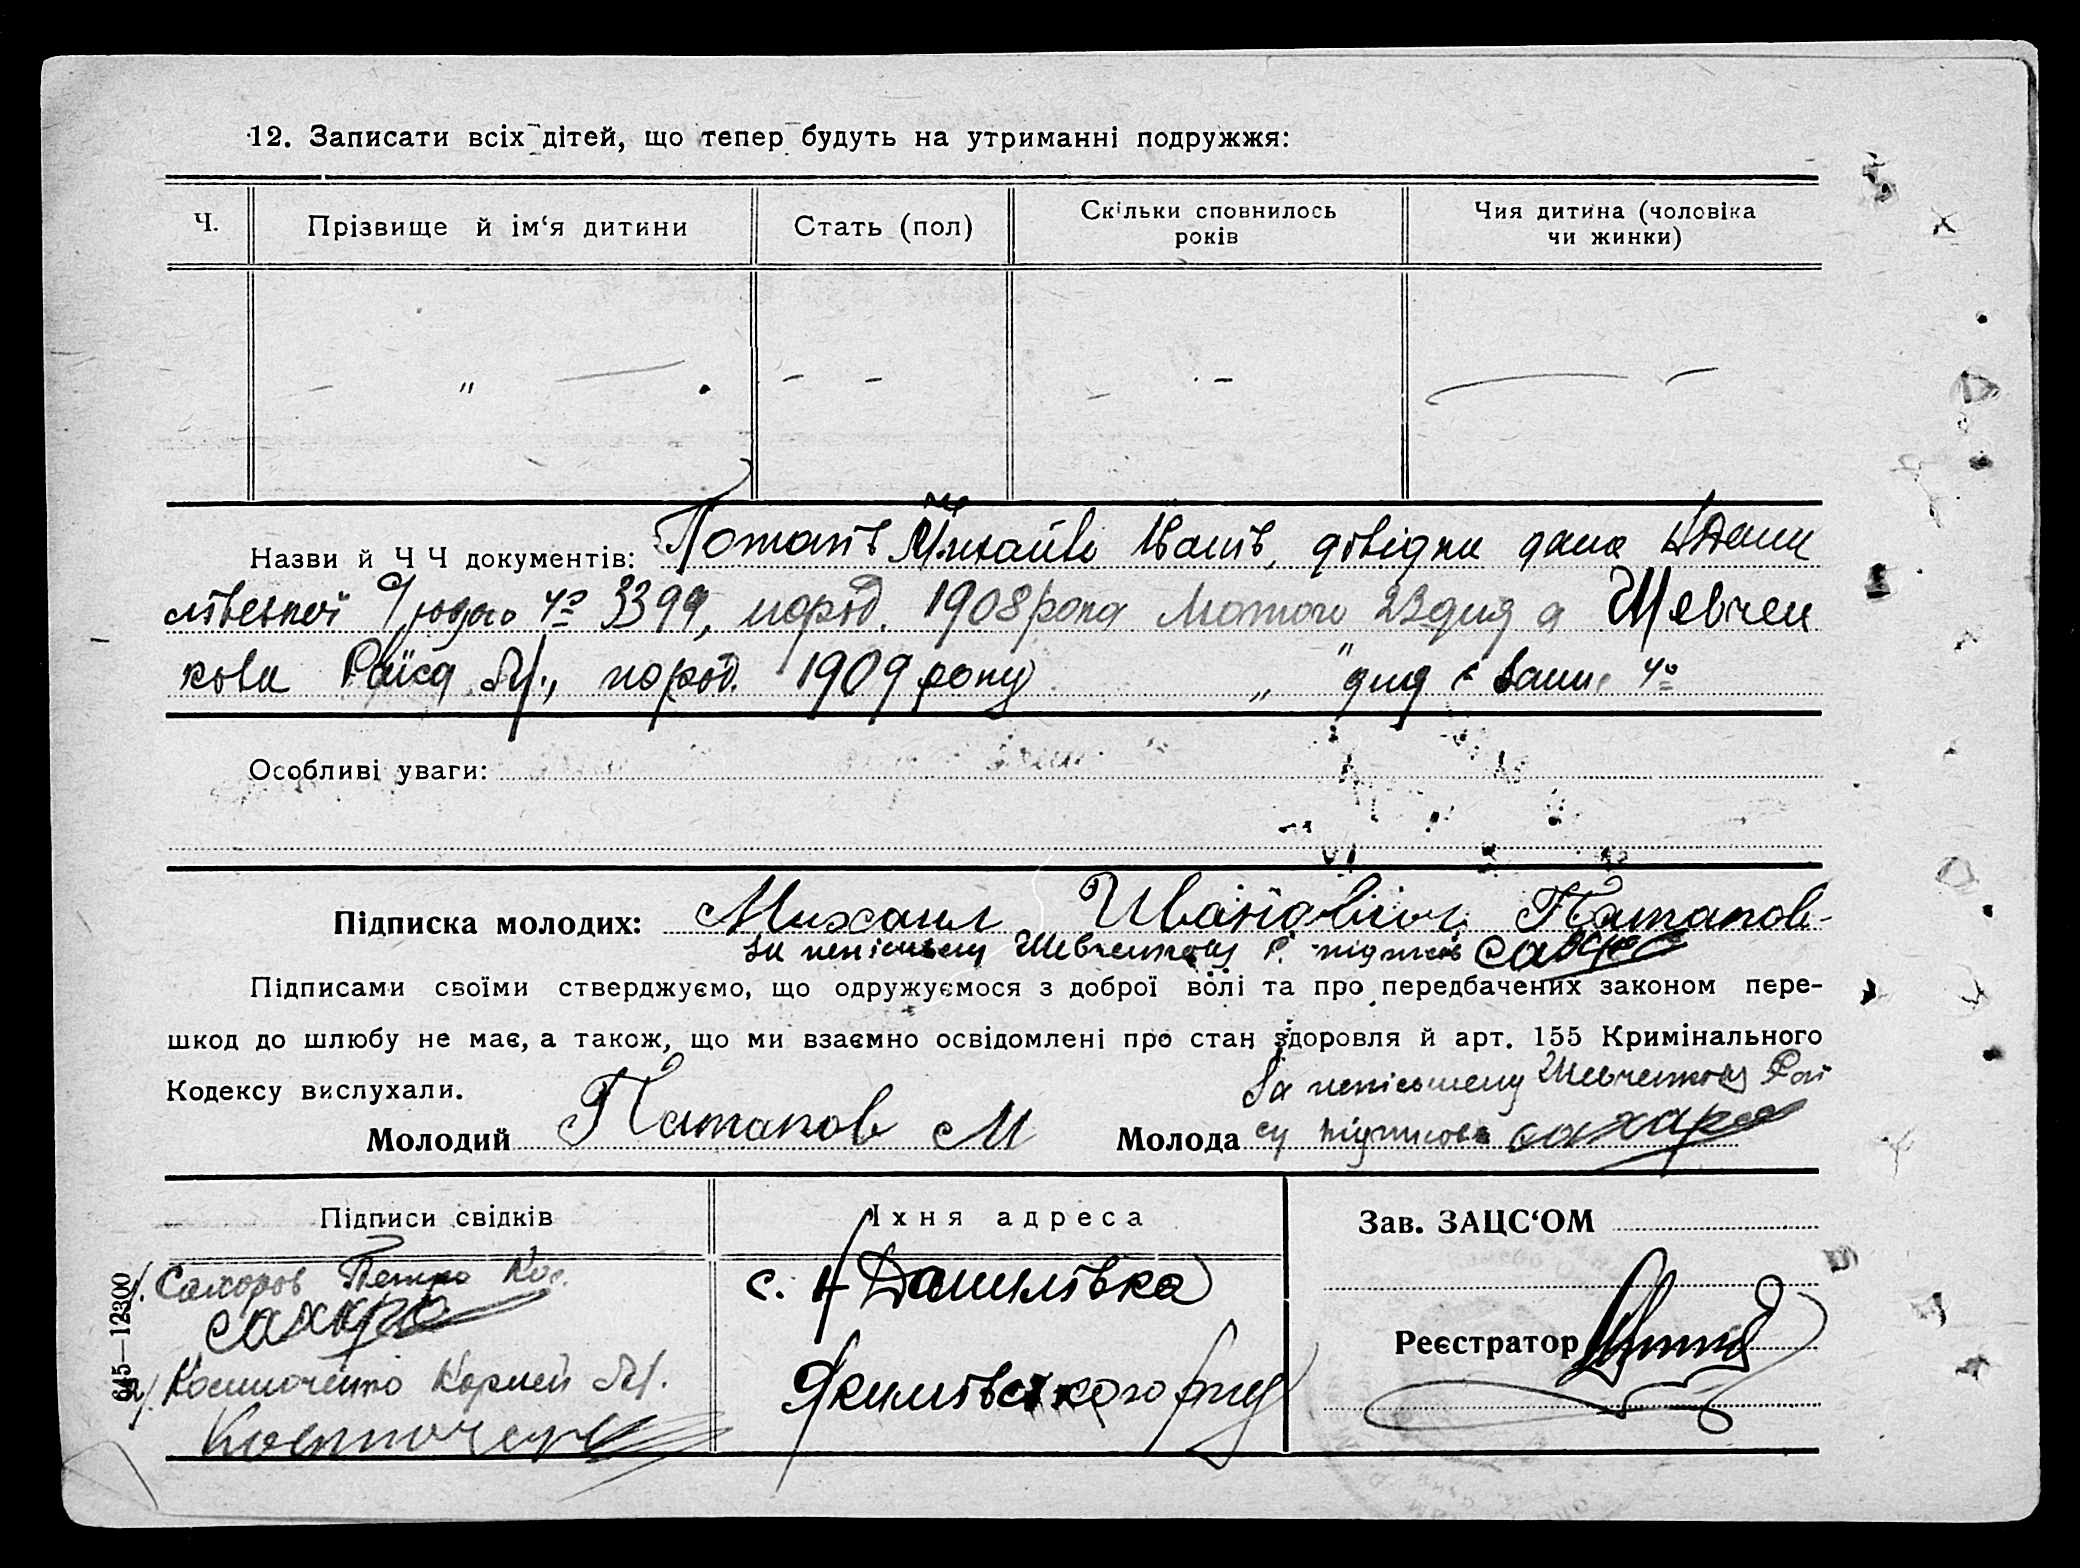 12. Записати всіх дітей, що тепер будуть на утриманні подружжя:
Ч. Прізвище й ім‘я дитини Стать (пол) Скільки сповнилось років Чия дитина (чоловіка чи жинки)
— " — . — — . — —
Назви й Ч Ч документів: довідки дана
3399, народ. 1908 рока Лютого 23 дня а Шевчен
кова Раїса М., народ. 1909 року " " дня
Особливі уваги:
Підписка молодих: Михаил Иванович Патапов
За неписьмену Шевченкову Р. підписав Сахаро
Підписами своїми стверджуємо, що одружуємося з доброї волі та про передбачених законом пере-
шкод до шлюбу не має, а також, що ми взаємно освідомлені про стан здоровля й арт. 155 Кримінального
Кодексу вислухали.
За неписьмену Шевченкову Раї
Молодий Патапов М Молода су підписав Сахаро
Підписи свідків Їхня адреса Зав. ЗАЦС‘ОМ
1. Сахоров Петро Кос. с. Н Данилівка
Сахаро
Реєстратор
2/ Костюченко Корней М. Якимівського р-ну
645—12300